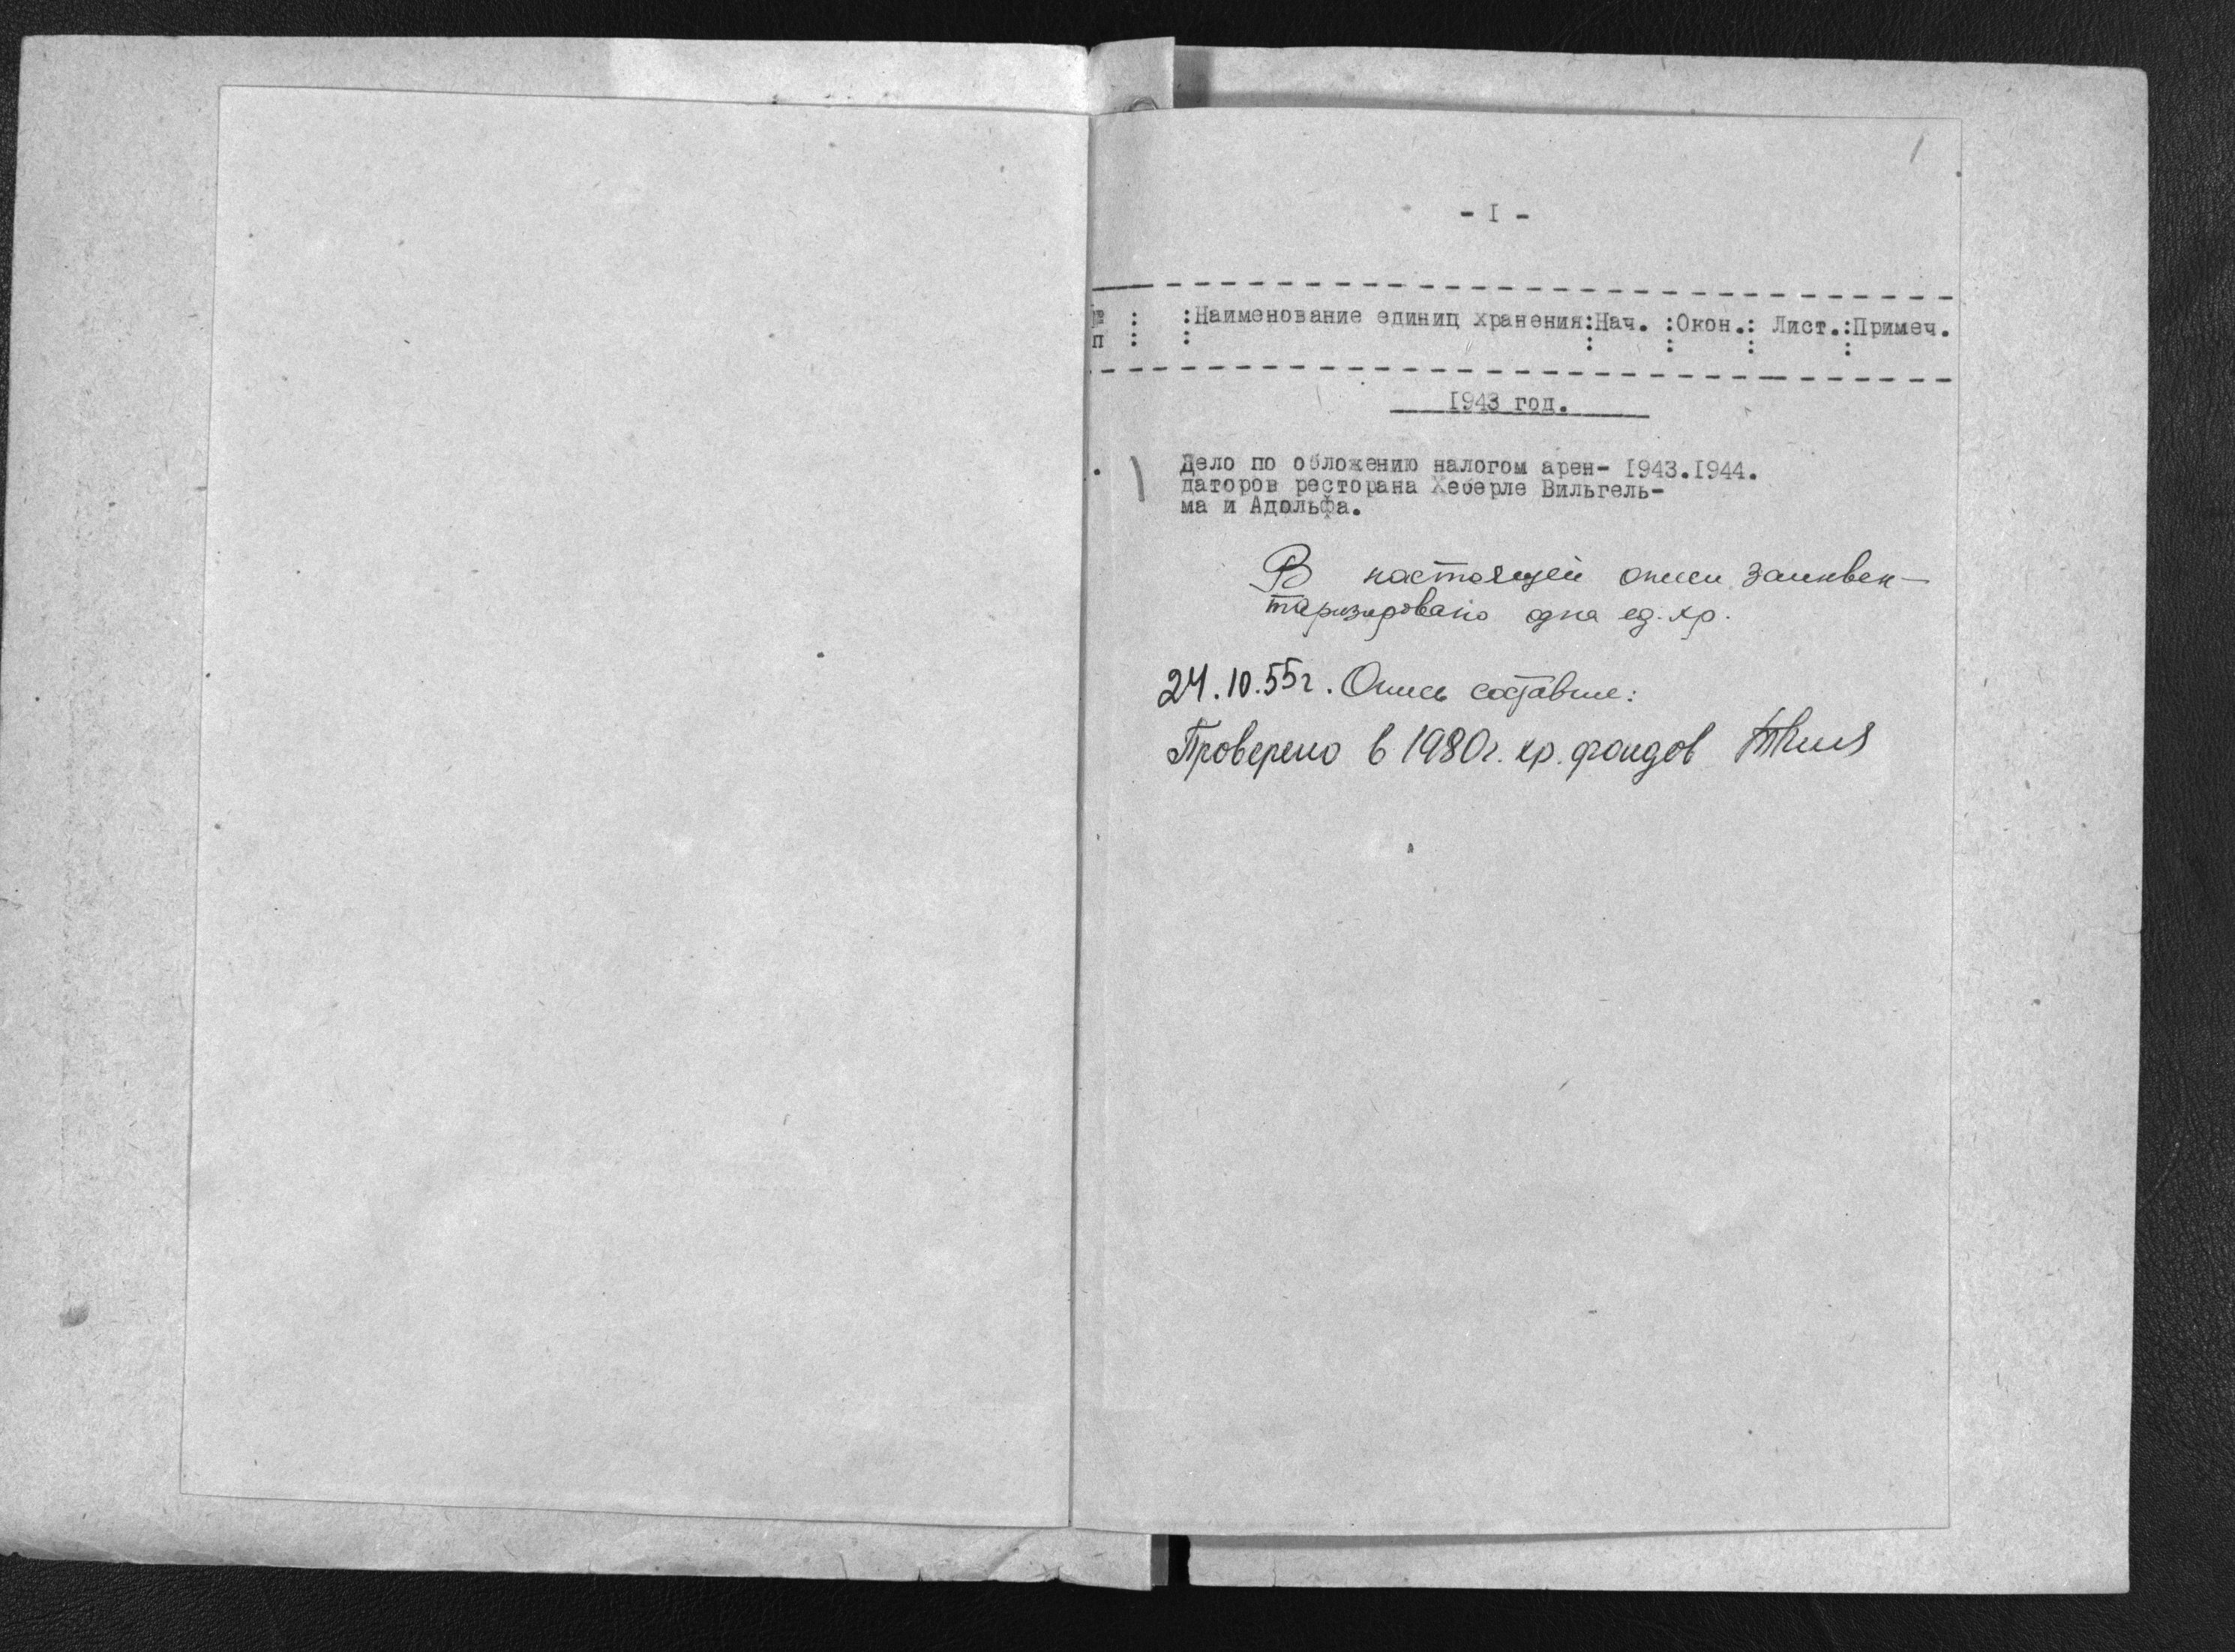 1
- I -
№ : :Наименование единиц хранения:Нач. :Окон.: Лист.:Примеч.
п : : : : : :
I943 год.
Дело по обложению налогом арен- I943.I944.
даторов ресторана Хеберле Вильгель-
ма и Адольфа.
В настоящей описи заинвен-
таризировано одна ед. хр.
24.10.55г. Опись составил:
Проверено в 1980г. хр. фондов